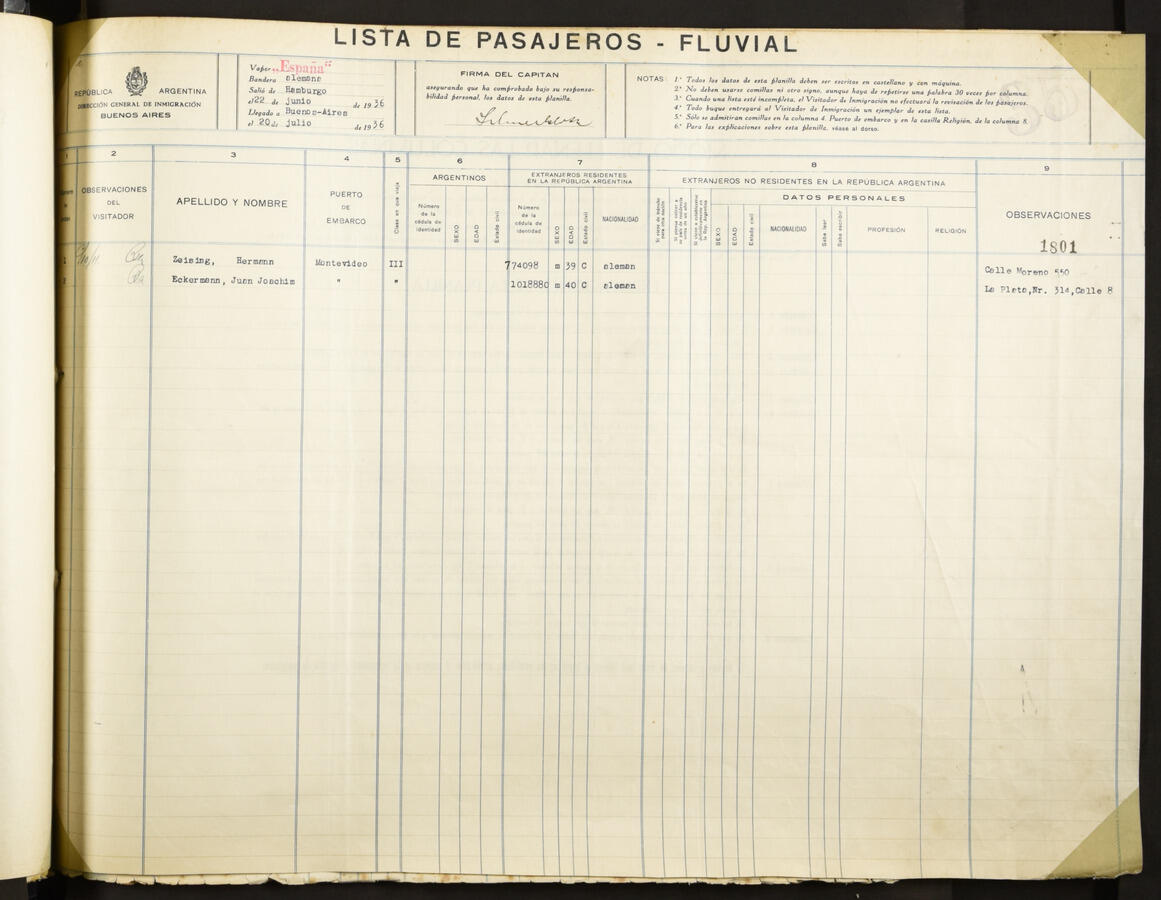 LISTA DE PASAJEROS - FLUVIAL
REPÚBLICA ARGENTINA
DIRECCIÓN GENERAL DE INMIGRACIÓN
BUENOS AIRES
Vapor „España“
Bandera alemana
Salió de Hamburgo
el 22 de junio de 1936
Llegado a Buenos-Aires
el 20 de julio de 1936
FIRMA DEL CAPITAN
asegurando que ha comprobado bajo su responsa-
bilidad personal, los datos de esta planilla.
NOTAS: 1.ª Todos los datos de esta planilla deben ser escritos en castellano y con máquina.
2.ª No deben usarse comillas ni otro signo, aunque haya de repetirse una palabra 30 veces por columna.
3.ª Cuando una lista esté incompleta, el Visitador de Inmigración no efectuará la revisación de los pasajeros.
4.ª Todo buque entregará al Visitador de Inmigración un ejemplar de esta lista.
5.ª Sólo se admitirán comillas en la columna 4. Puerto de embarco y en la casilla Religión, de la columna 8.
6.ª Para las explicaciones sobre esta planilla, véase al dorso.
1 2 3 4 5 6 7 8 9
OBSERVACIONES
DEL
VISITADOR
APELLIDO Y NOMBRE
PUERTO
DE
EMBARCO
Clase en que viaja
ARGENTINOS
Número
de la
cédula de
identidad
SEXO
EDAD
Estado civil
EXTRANJEROS RESIDENTES
EN LA REPÚBLICA ARGENTINA
Número
de la
cédula de
identidad
SEXO
EDAD
Estado civil
NACIONALIDAD
EXTRANJEROS NO RESIDENTES EN LA REPÚBLICA ARGENTINA
DATOS PERSONALES
SEXO
EDAD
Estado civil
NACIONALIDAD
Sabe leer
Sabe escribir
PROFESIÓN
RELIGIÓN
OBSERVACIONES
1801
1 Zeising, Hermann Montevideo III 774098 m 39 C aleman Calle Moreno 550
2 Eckermann, Juan Joachim " " 1018880 m 40 C aleman La Plata,Nr. 314,Calle 8